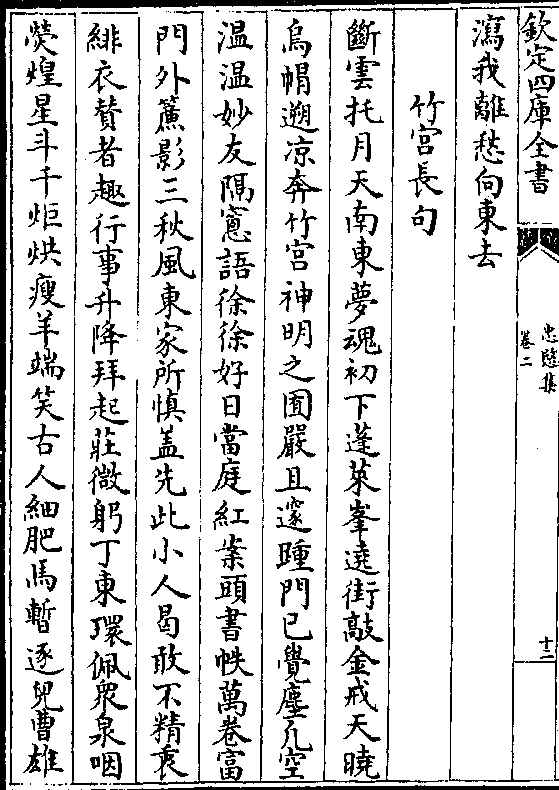 欽定四庫全書
忠隨集
卷二
十二
瀉我離愁向東去
竹宮長句
斷雲托月天南東夢魂初下蓬萊峯遶街敲金戒天曉
烏帽遡凉奔竹宮神明之囿嚴且邃踵門已覺塵凡空
温温妙友隔窻語徐徐好日當庭紅案頭書帙萬卷富
門外簾影三秋風東家所慎盖先此小人曷敢不精衷
緋衣賛者趣行事升降拜起莊微躬丁東環佩衆泉咽
熒煌星斗千炬烘瘦羊端笑古人細肥馬暫逐兒曹雄